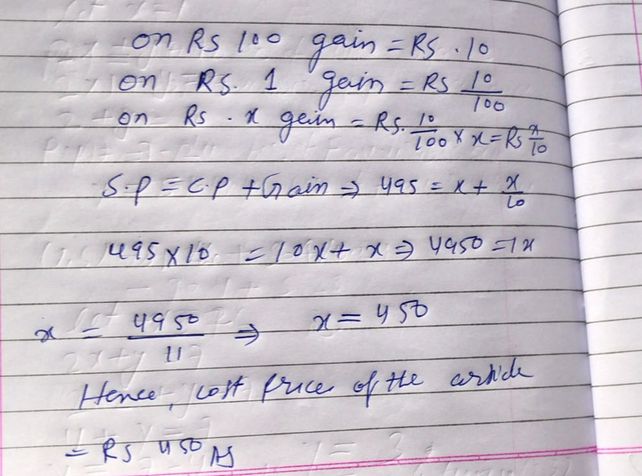 on Rs 100 gain = Rs. 10
on Rs. 1 gain = Rs 10/100
on Rs. x gain = Rs. 10/100 × x = Rs x/10
S.P = C.P + Gain ⇒ 495 = x + x/10
495 × 10 = 10x + x ⇒ 4950 = 1x
x = 4950/11 ⇒ x = 450
Hence, cost price of the article
= Rs 450 As